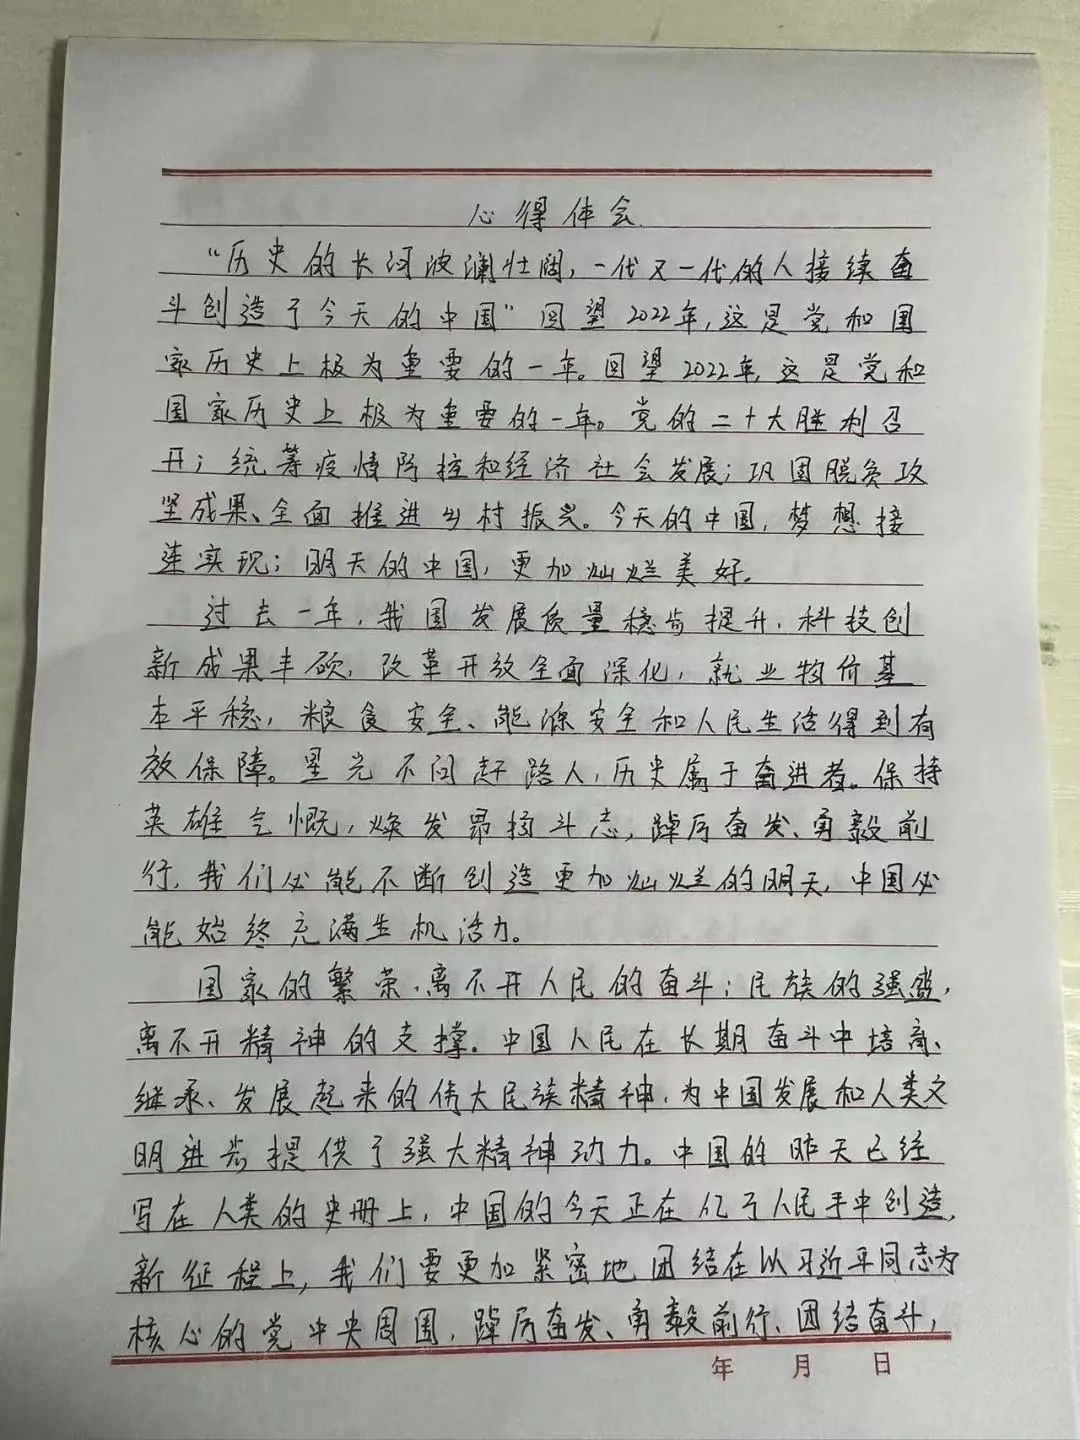 心得体会
“历史的长河波澜壮阔，一代又一代的人接续奋
斗创造了今天的中国”回望2022年，这是党和国
家历史上极为重要的一年。回望2022年，这是党和
国家历史上极为重要的一年。党的二十大胜利召
开；统筹疫情防控和经济社会发展；巩固脱贫攻
坚成果、全面推进乡村振兴。今天的中国，梦想接
连实现；明天的中国，更加灿烂美好。
过去一年，我国发展质量稳步提升，科技创
新成果丰硕，改革开放全面深化，就业物价基
本平稳，粮食安全、能源安全和人民生活得到有
效保障。星光不问赶路人，历史属于奋进者。保持
英雄气慨，焕发昂扬斗志，踔厉奋发、勇毅前
行，我们必能不断创造更加灿烂的明天，中国必
能始终充满生机活力。
国家的繁荣，离不开人民的奋斗；民族的强盛，
离不开精神的支撑。中国人民在长期奋斗中培育、
继承、发展起来的伟大民族精神，为中国发展和人类文
明进步提供了强大精神动力。中国的昨天已经
写在人类的史册上，中国的今天正在亿万人民手中创造，
新征程上，我们要更加紧密地团结在以习近平同志为
核心的党中央周围，踔厉奋发、勇毅前行、团结奋斗，
年 月 日